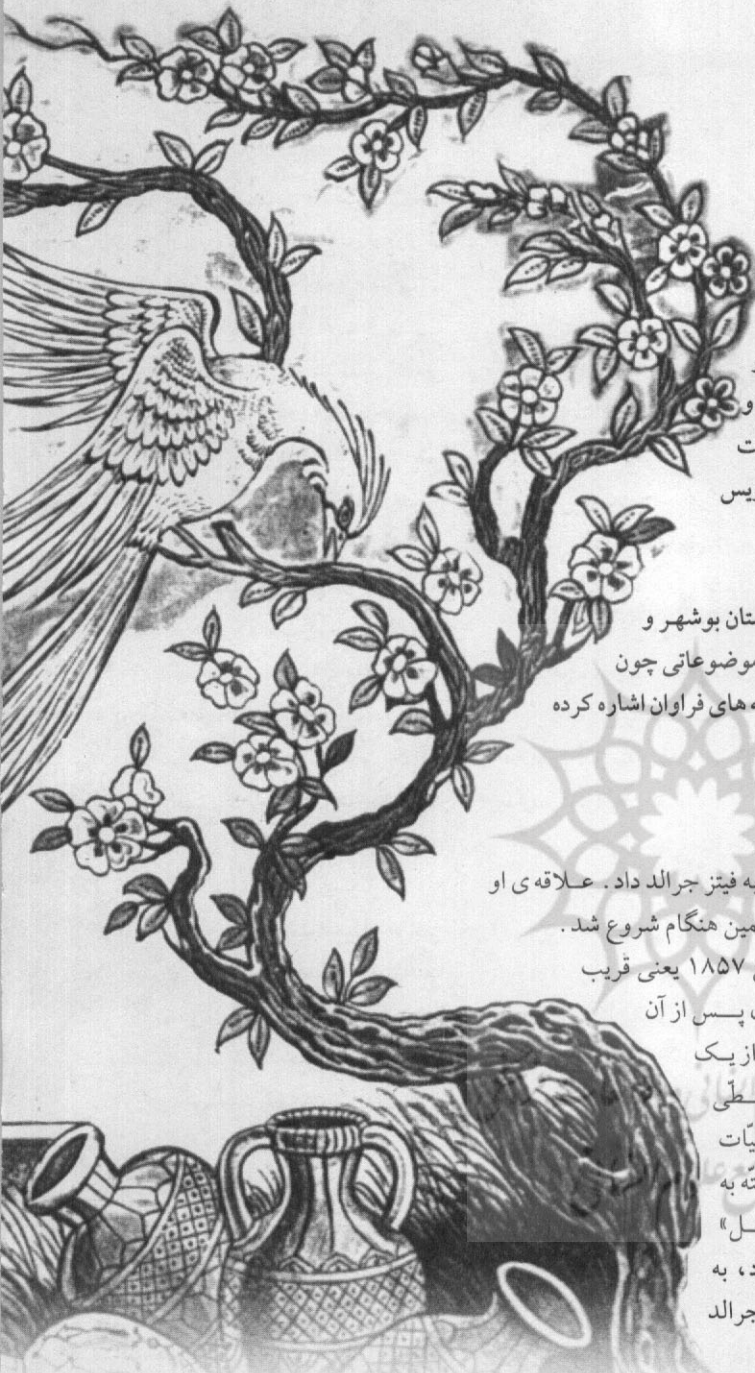 و
ت
یس
ستان بوشهر و
موضوعاتی چون
ه های فراوان اشاره کرده
به فیتز جرالد داد. عـلاقه ی او
مین هنگام شروع شد.
۱۸۵۷ یعنی قریب
پــس از آن
از یـک
ـطّی
یّات
ته به
ـل»
د، به
جرالد